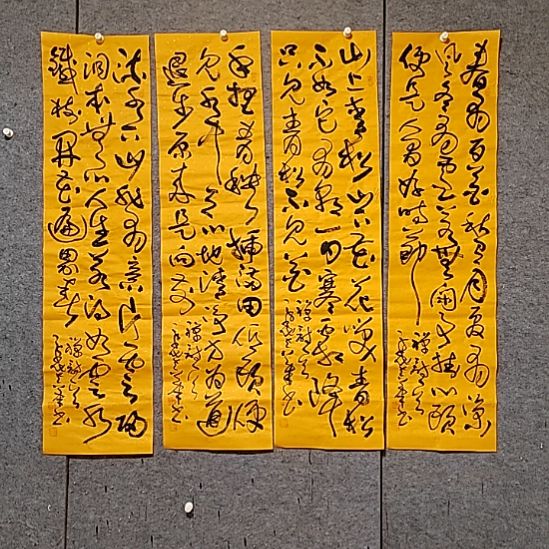 春有百花秋有月夏有凉
风冬有雪若无闲事挂心头
便是人间好时节
禅诗一首
山上青松山下花花笑青松
不如它有朝一日寒霜降
只见青松不见花
禅诗一首
手把青秧插满田低头便
见水中天心地清净方为道
退步原来是向前
禅诗一首
流水下山非有意片云归
洞本无心人生若得如云水
鐵树开花遍界春
禅诗一首